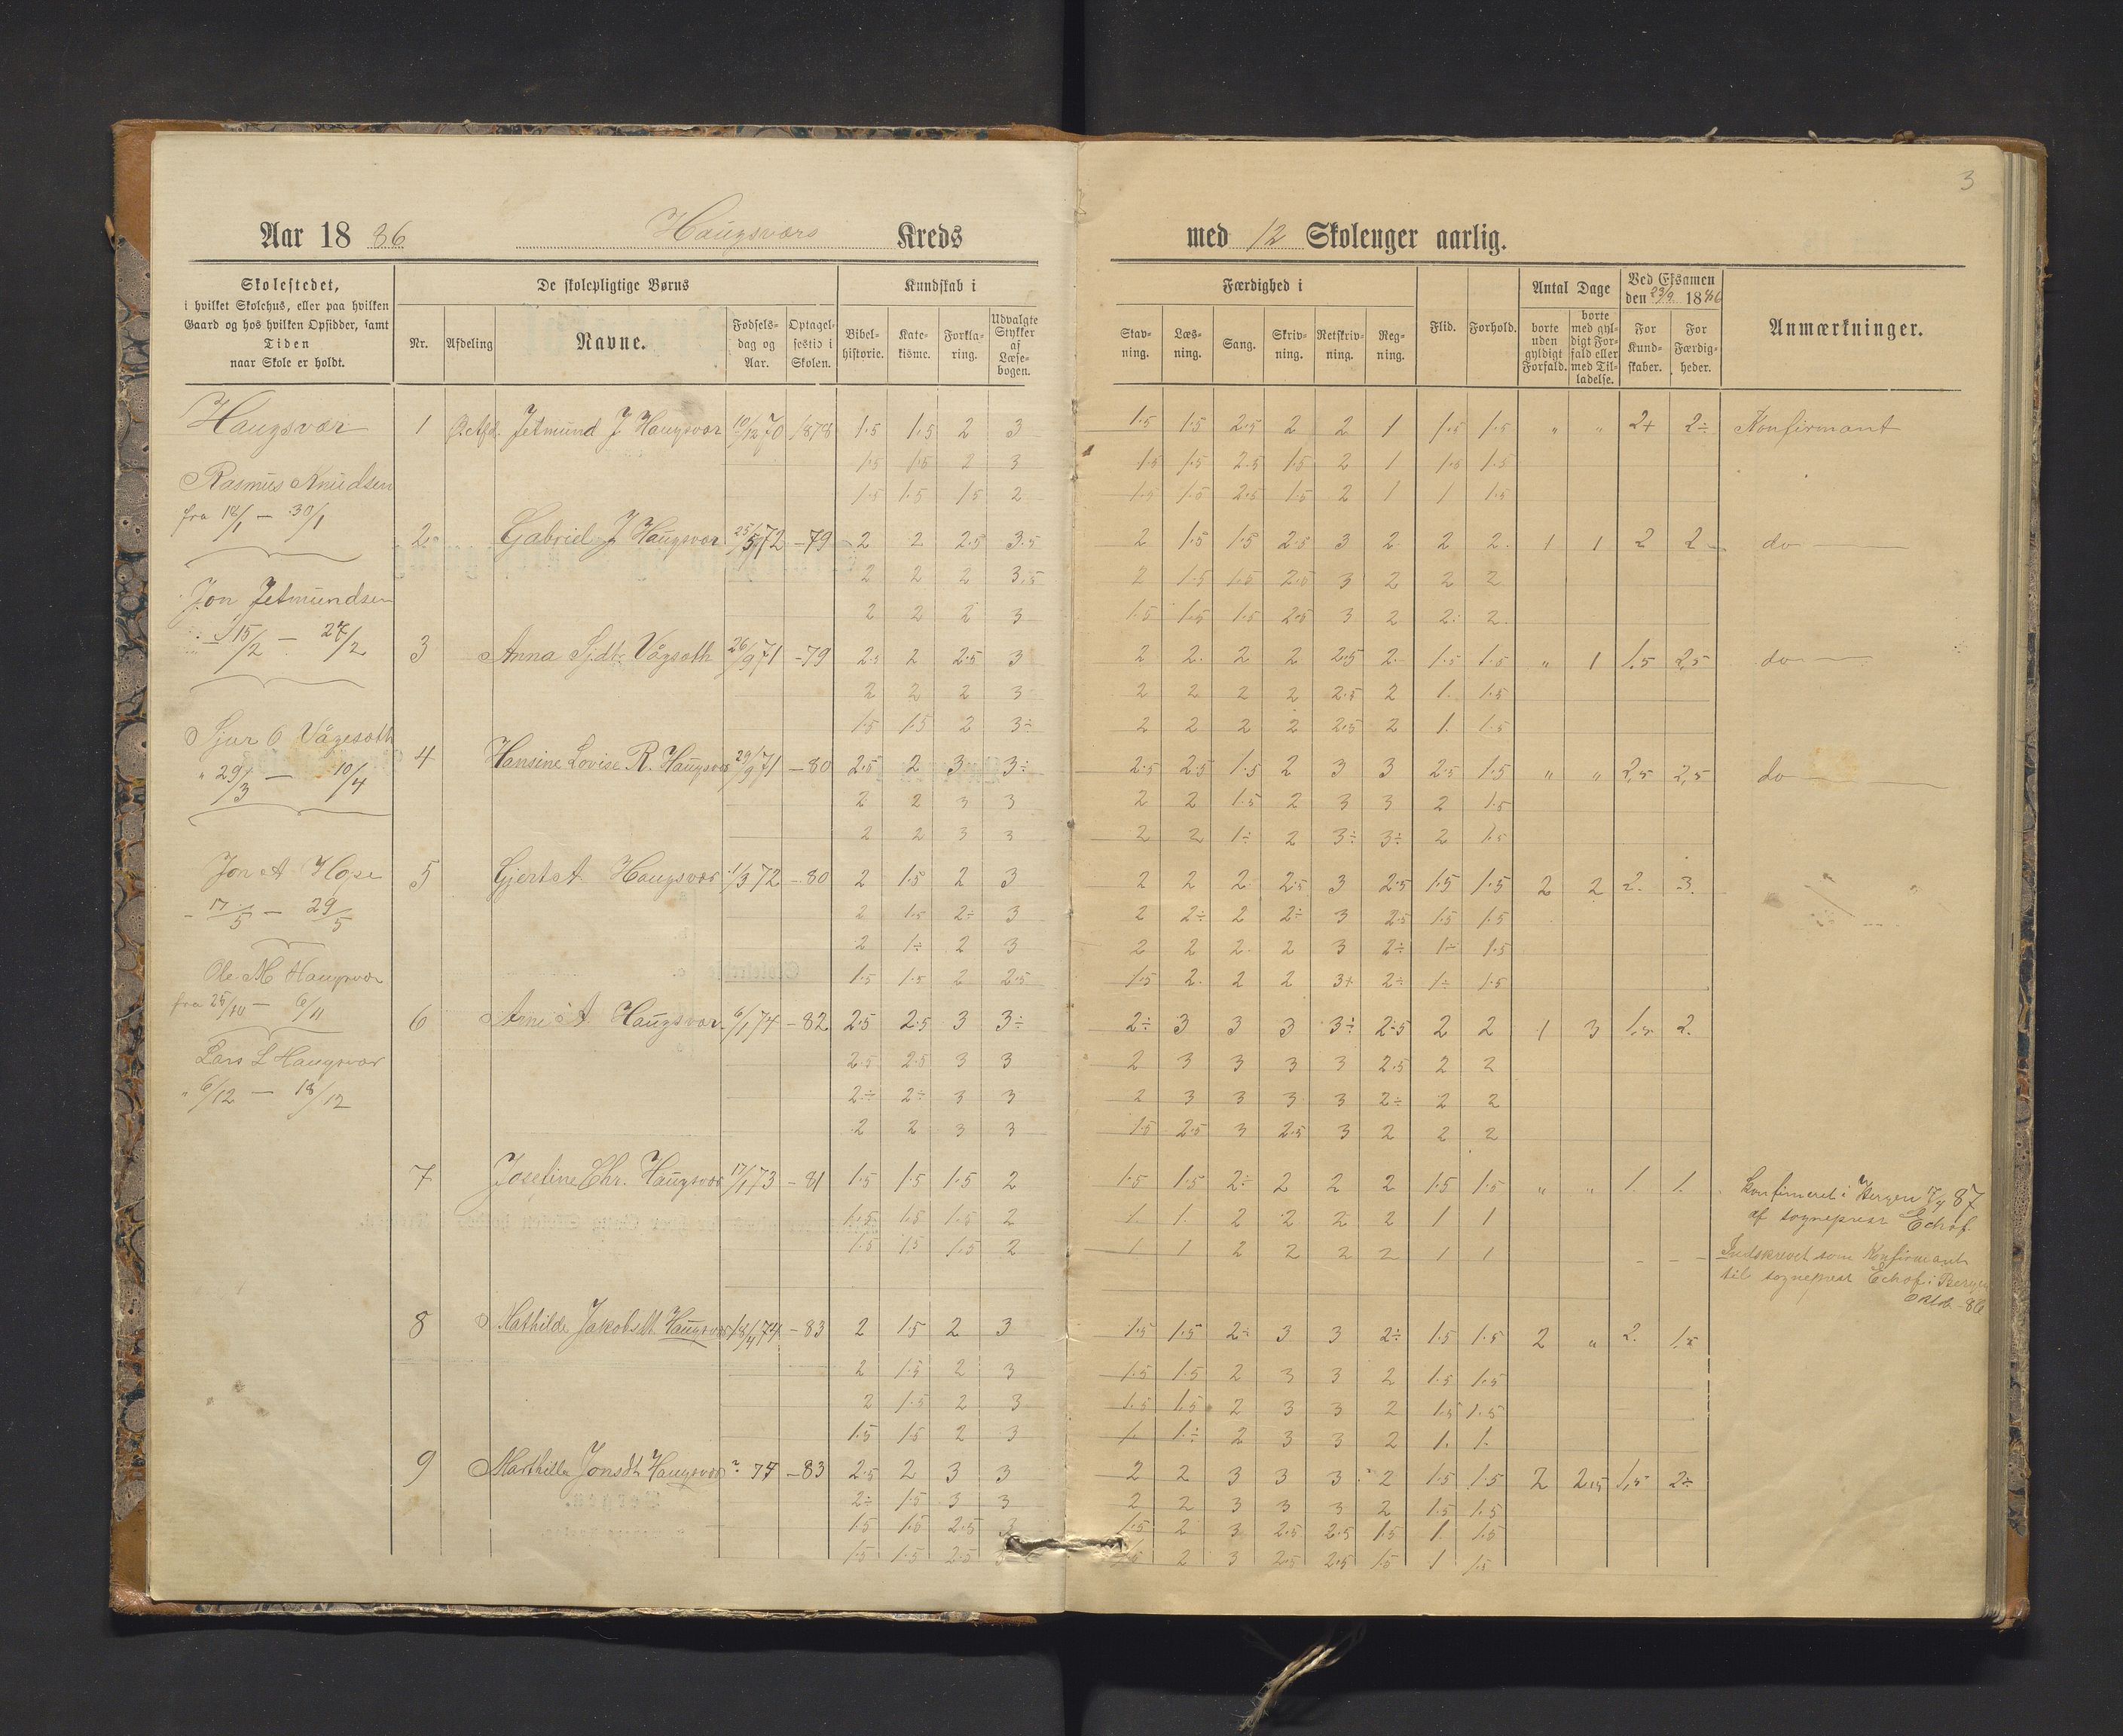 3
Aar 1886 Haugsværs Kreds med 12 Skoleuger aarlig.
Skolestedet,
i hvilket Skolehus, eller paa hvilken
Gaard og hos hvilken Opsidder, samt
Tiden
naar Skole er holdt.
De skolepligtige Børns
Nr. Afdeling Navne. Fødselsdag og Aar. Optagelsestid i Skolen.
Kundskab i
Bibelhistorie. Katekisme. Forklaring. Udvalgte Stykker af Læsebogen.
Færdighed i
Stavning. Læsning. Sang. Skrivning. Retskrivning. Regning.
Flid. Forhold.
Antal Dage
borte uden gyldigt Forfald. borte med gyldigt Forfald eller med Tilladelse.
Ved Eksamen
den 23/9 1886
For Kundskaber. For Færdigheder.
Anmærkninger.
Haugsvær
Rasmus Knudsen
fra 18/1 — 30/1
Jon Jetmundsen
15/2 — 27/2
Sjur O Vågesæth
" 29/3 — 10/4
Jon A Hope
17/5 — 29/5
Ole M Haugsvær
fra 25/10 — 6/11
Lars L Haugsvær
" 6/12 — 18/12
1 Jetmund J Haugsvær 10/12 70 1878 1.5 1.5 2 3 1.5 1.5 2.5 2 2 1 1.5 1.5 " " 2+ 2÷ Konfirmant
1.5 1.5 2 3 1.5 1.5 2.5 1.5 2 1 1.5 1.5
1.5 1.5 1.5 2 1.5 1.5 2.5 1.5 2 1 1 1.5
2 Gabriel J Haugsvær 25/5 72 -79 2 2 2.5 3.5 2 1.5 1.5 2.5 3 2 2 2 1 1 2 2 do
2 2 2 3.5 2 1.5 1.5 2.5 3 2 2 2
2 2 2 3 1.5 1.5 1.5 2.5 3 2 2 2
3 Anna Sjdtr. Vågsæth 26/9 71 -79 2 2 2.5 3 2 2 2 2 2.5 2 1.5 1.5 " 1 1.5 2.5 do
2 2 2 3 2 2 2 2 2.5 2 1. 1.5
1.5 1.5 2 3÷ 2 2 2 2 2.5 2 1. 1.5
4 Hansine Lovise R. Haugsvær 29/9 71 -80 2.5 2 3 3÷ 2.5 2.5 1.5 2 3 3 2.5 1.5 " " 2,5 2,5 do
2 2 3 3 2 2 1.5 2 3 3 2 1.5
2 2 3 3 2 2 1÷ 2 3÷ 3÷ 2 1.5
5 Gjert A. Haugsvær 1/3 72 -80 2 1.5 2 3 2 2 2 2.5 3 2.5 1.5 1.5 2 2 2. 3.
2 1.5 2÷ 3 2 2÷ 2 2÷ 3 2.5 1.5 1.5
2 1÷ 2 3 2 2 2 2 3 2÷ 1÷ 1.5
1.5 1.5 2 2.5 1.5 2. 2 2 3+ 2÷ 1÷ 1.5
6 Arne A Haugsvær 6/1 74 -82 2.5 2.5 3 3÷ 2÷ 3 3 3 3÷ 2.5 2 2 1 3 1.5 2.
2.5 2.5 3 3 2 3 3 3 3 2.5 2 2
2÷ 2÷ 3 3 2 3 3 3 3 2÷ 2 2
2 2 3 3 1.5 2.5 3 2.5 3 2 2 2
7 Joseline Chr. Haugsvær 17/1 73 -81 1.5 1.5 1.5 2 1.5 1.5 2÷ 2 2 2 1.5 1.5 " " 1. 1. Konfirmeret i Bergen 17/4 87
af sogneprest Echof.
1.5 1.5 1.5 2 1. 1. 2 2 2 2 1 1
1.5 1.5 1.5 2 1 1 2 2 2 2 1 1 Indskrevet som Konfirmant
til sogneprest Echof i Bergen
Oktb -86
8 Mathilde Jakobsdt. Haugsvær 18/4 74 -83 2 1.5 2 3 1.5 1.5 2÷ 3 3 2÷ 1.5 1.5 2 " 2. 1.5
2 1.5 2 3 1.5 1.5 2 3 3 2 1.5 1.5
2 1.5 2 3 1.5 1.5 2 3 3 2 1.5 1.5
1.5 1.5 2 3 1. 1÷ 2 3 3 2 1. 1.
9 Marthilde Jonsdt Haugsvær ? 74 -83 2.5 2 3 3 2 2 3 3 3 2 1.5 1.5 2 2.5 1,5 2÷
2÷ 1.5 3 3 2 2 3 3 3 2 1.5 1.5
1.5 1.5 2.5 3 1.5 2 3 2.5 2.5 1.5 1 1.5
1.5 1.5 2.5 1.5 2 3 2.5 2.5 1.5 1 1.5